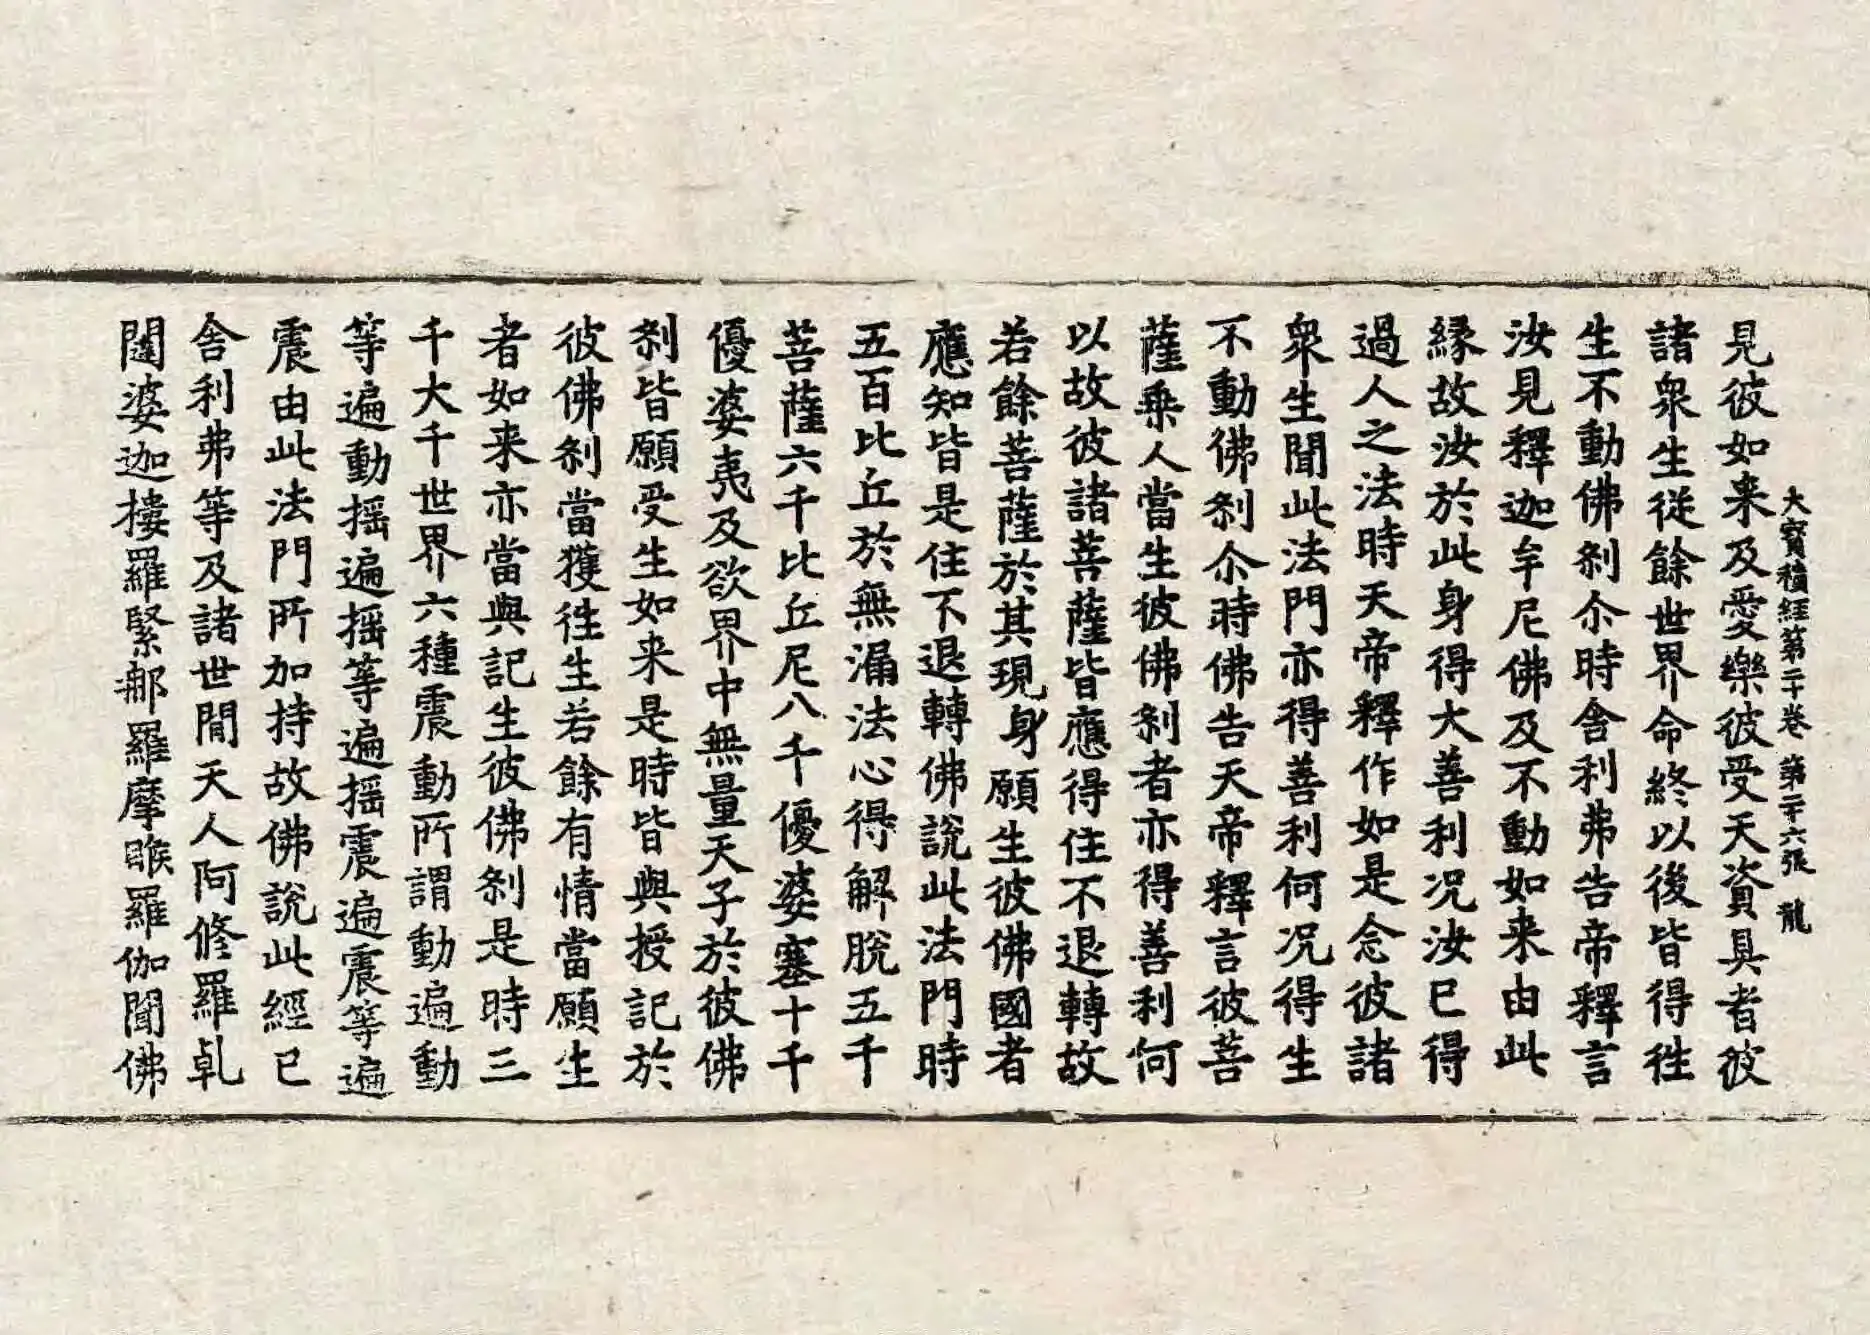 大寶積經第二十卷 第二十六張 龍
見彼如来及愛樂彼受天資具者彼
諸衆生從餘世界命終以後皆得徃
生不動佛刹尒時舎利弗告帝釋言
汝見釋迦牟尼佛及不動如来由此
緣故汝於此身得大善利况汝已得
過人之法時天帝釋作如是念彼諸
衆生聞此法門亦得善利何况得生
不動佛刹尒時佛告天帝釋言彼菩
薩乗人當生彼佛刹者亦得善利何
以故彼諸菩薩皆應得住不退轉故
若餘菩薩於其現身願生彼佛國者
應知皆是住不退轉佛說此法門時
五百比丘於無漏法心得解脫五千
菩薩六千比丘尼八千優婆塞十千
優婆夷及欲界中無量天子於彼佛
刹皆願受生如来是時皆與授記於
彼佛刹當獲徃生若餘有情當願生
者如来亦當與記生彼佛刹是時三
千大千世界六種震動所謂動遍動
等遍動揺遍揺等遍揺震遍震等遍
震由此法門所加持故佛說此經已
舎利弗等及諸世間天人阿修羅乹
闥婆迦樓羅緊那羅摩睺羅伽聞佛